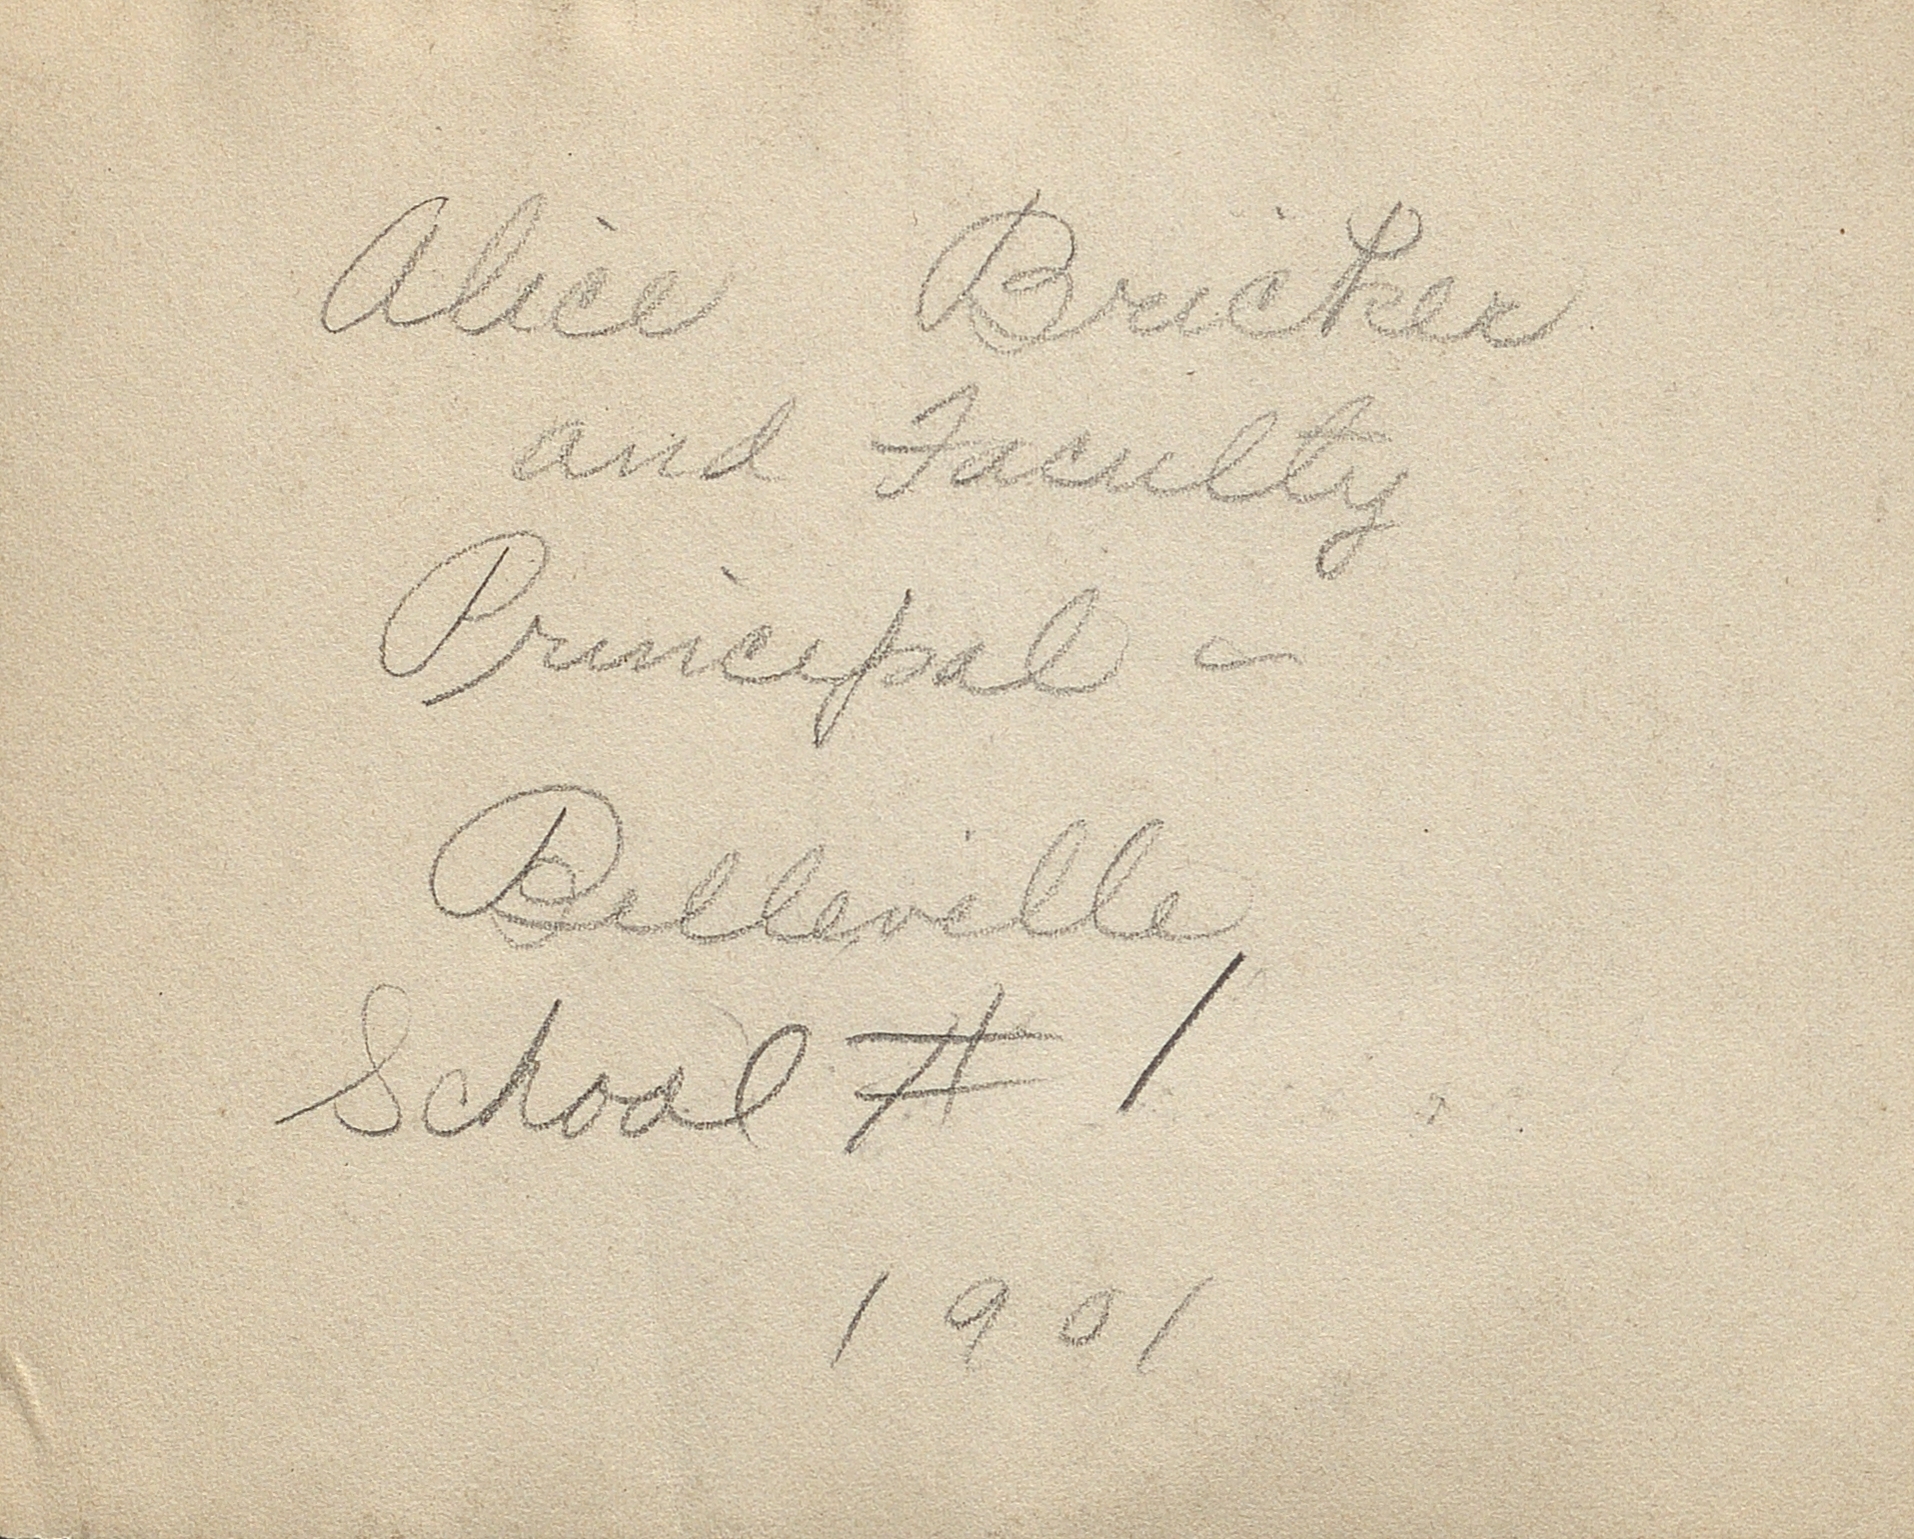 Alice Bricker
and Faculty
Principal -
Belleville
School # 1
1901